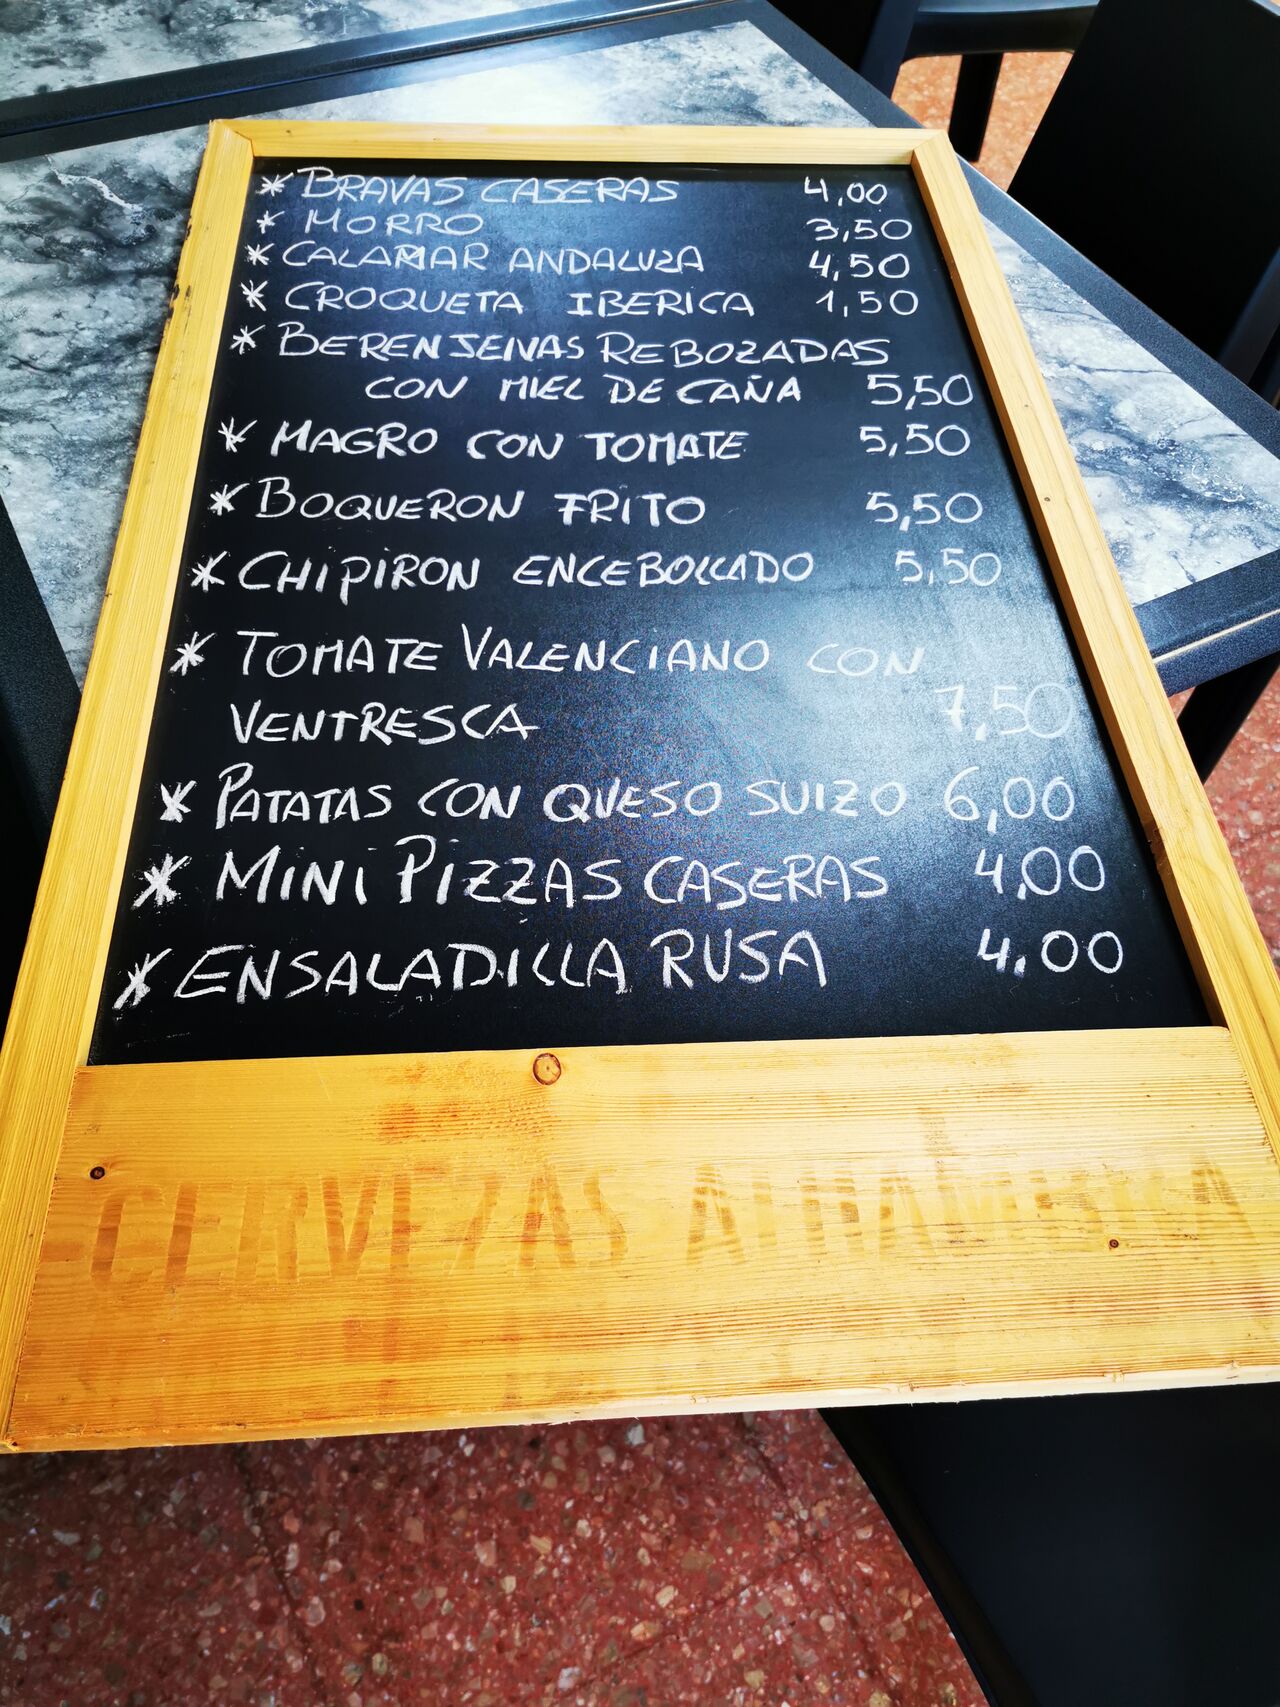 * BRAVAS CASERAS 4,00
* MORRO 3,50
* CALAMAR ANDALUZA 4,50
* CROQUETA IBERICA 1,50
* BERENJENAS REBOZADAS
CON MIEL DE CAÑA 5,50
* MAGRO CON TOMATE 5,50
* BOQUERON FRITO 5,50
* CHIPIRON ENCEBOLLADO 5,50
* TOMATE VALENCIANO CON
VENTRESCA 7,50
* PATATAS CON QUESO SUIZO 6,00
* MINI PIZZAS CASERAS 4,00
* ENSALADILLA RUSA 4.00
CERVEZAS ALHAMBRA